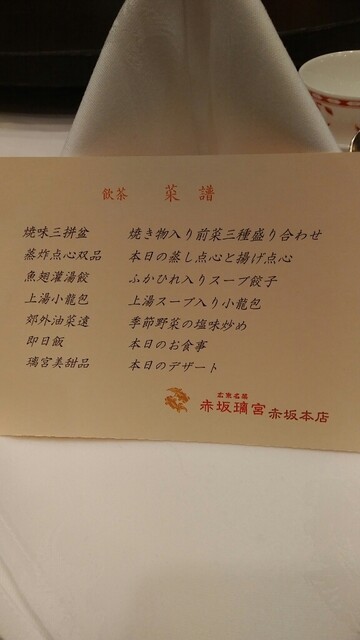 飲茶 菜譜
焼味三拼盆 焼き物入り前菜三種盛り合わせ
蒸炸点心双品 本日の蒸し点心と揚げ点心
魚翅灌湯餃 ふかひれ入りスープ餃子
上湯小龍包 上湯スープ入り小龍包
郊外油菜遠 季節野菜の塩味炒め
即日飯 本日のお食事
璃宮美甜品 本日のデザート
広東名菜
赤坂璃宮 赤坂本店